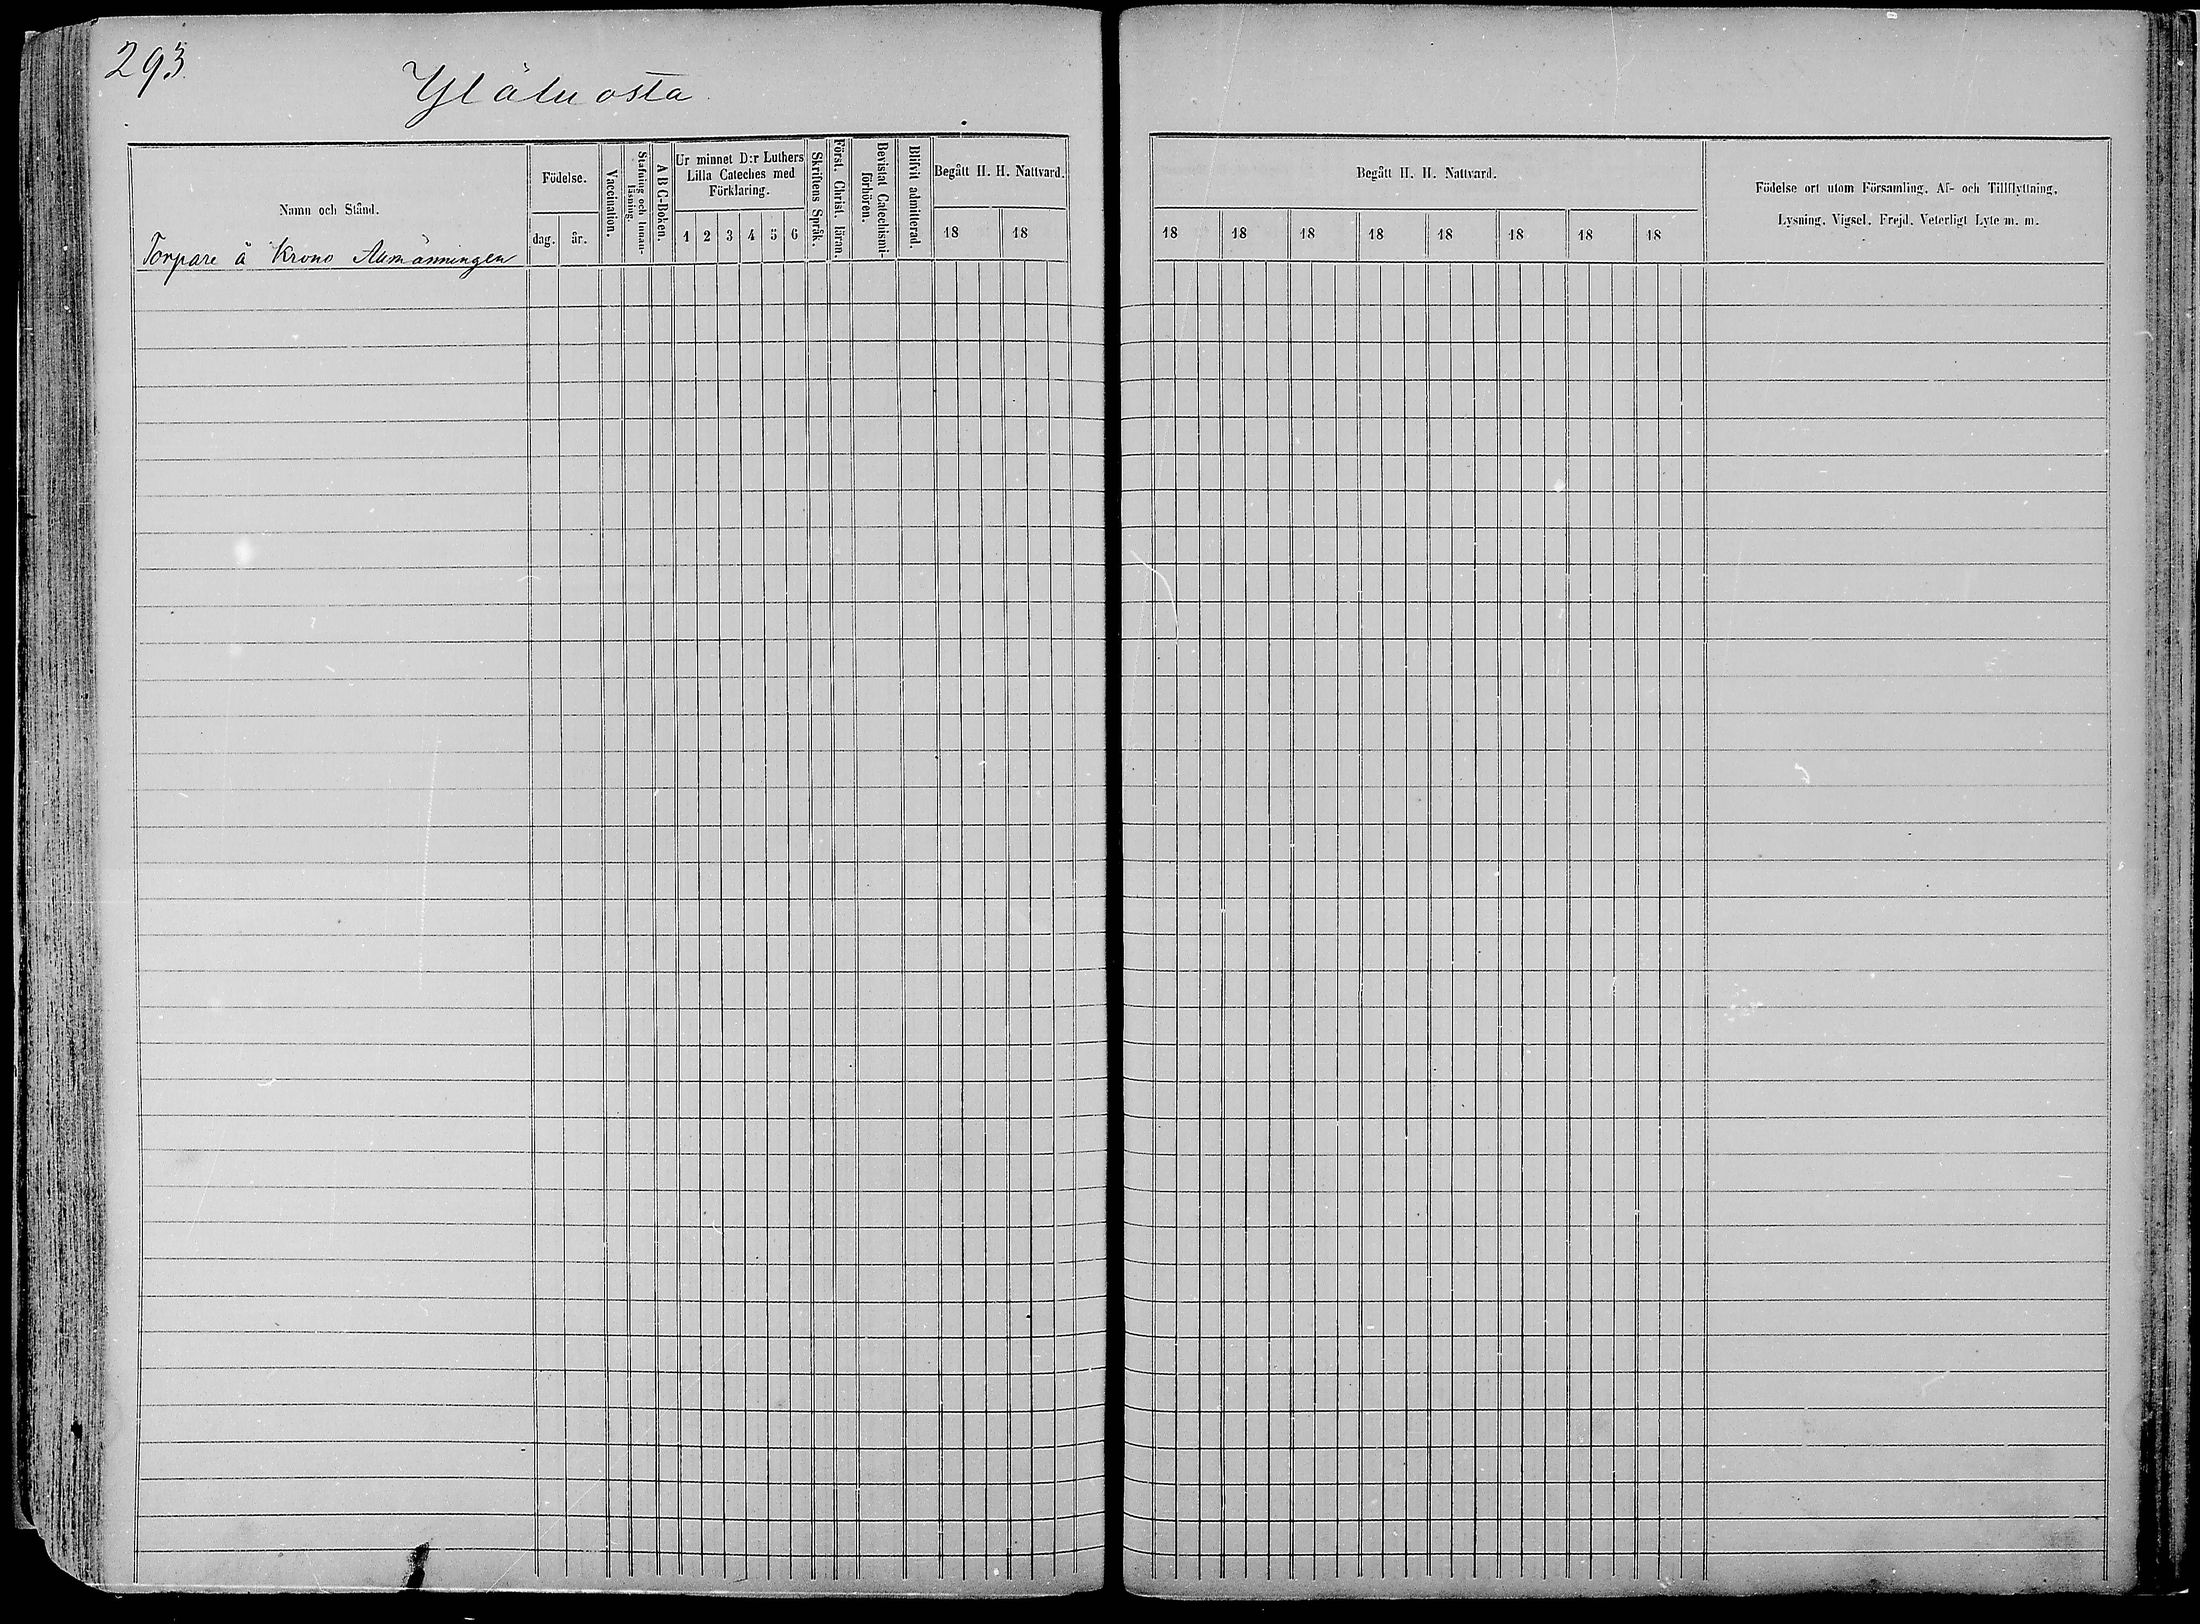 293.
Ylätuosta
Namn och Stånd.
Födelse.
dag.
år.
Vaccination.
Stafning och Innan-
läsning.
A B C-Boken.
Ur minnet D:r Luthers
Lilla Cateches med
Förklaring.
1 2 3 4 5 6
Skriftens Språk.
Först. Christ. läran.
Bevistat Catechismi-
förhören.
Blifvit admitterad.
Begått H. H. Nattvard.
18 18
Begått H. H. Nattvard.
18 18 18 18 18 18 18 18
Födelse ort utom Församling, Af- och Tillflyttning,
Lysning, Vigsel, Frejd, Veterligt Lyte m. m.
Torpare å Krono Allmänningen